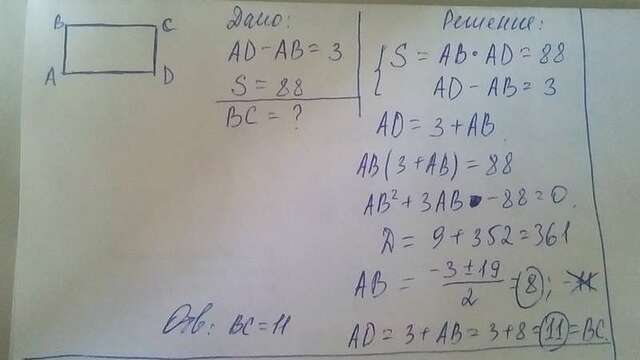 B C
A D
Дано:
AD - AB = 3
S = 88
BC = ?
Решение:
{ S = AB · AD = 88
AD - AB = 3
AD = 3 + AB
AB(3 + AB) = 88
AB² + 3AB - 88 = 0.
Д = 9 + 352 = 361
AB = (-3 ± 19)/2 = 8;
AD = 3 + AB = 3 + 8 = 11 = BC.
Отв: BC = 11